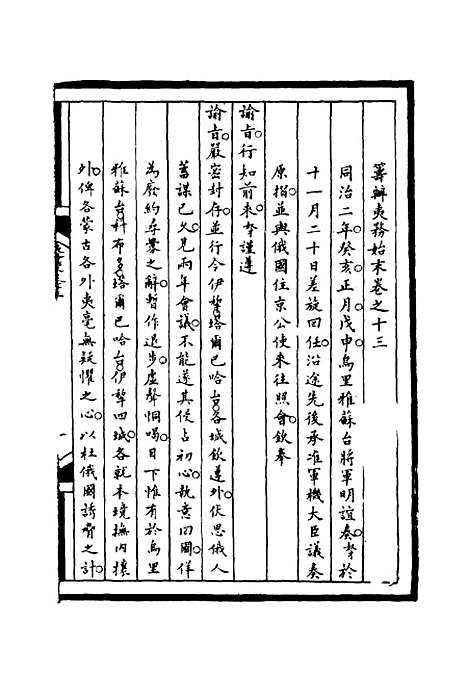 籌辦夷務始末卷之十三
同治二年癸亥正月戊申烏里雅蘇台將軍明誼奏奴才於
十一月二十日差旋回任沿途先後承准軍機大臣議奏
原摺並與俄國住京公使來往照會欽奉
諭旨行知前來奴才謹遵
諭旨嚴密封存並行令伊犂塔爾巴哈台各城欽遵外伏思俄人
蓄謀已久見兩年會議不能遂其侵占初心執意回國佯
為廢約尋釁之辭暫作退步虛聲恫喝目下惟有於烏里
雅蘇台科布多塔爾巴哈台伊犂四城各就本境撫內攘
外俾各蒙古各外夷毫無疑懼之心以杜俄國誘脅之計